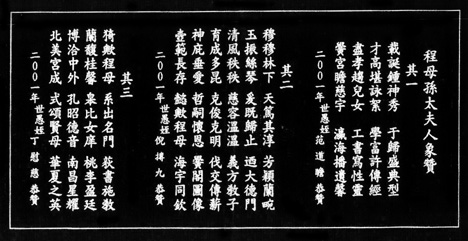 程母孫太夫人象贊
其一
載誕鍾神秀　于歸盛典型
才高堪詠絮　學富許傳經
盡孝趨兒女　工書寫性靈
黌宮瞻慈宇　瀛海播遺馨
二〇〇一年世愚姪范道瞻恭贊
其二
穆穆林下　天篤其淳　芳穎蘭畹
玉振絲琴　爰既歸止　迺大德門
清風秩秩　慈容溫溫　義方教子
育成多昆　克俊克明　伐交傳薪
神庥垂愛　哲嗣懷恩　黌閣圖像
壼範長存　懿歟程母　海宇同欽
二〇〇一年世愚姪倪摶九恭贊
其三
猗歟程母　系出名門　荻書施教
蘭馥桂馨　皋比女庠　桃李盈廷
博洽中外　孔昭德音　南昌星耀
北美宮成　式頌賢母　華夏之英
二〇〇一年世愚姪丁慰慈恭贊